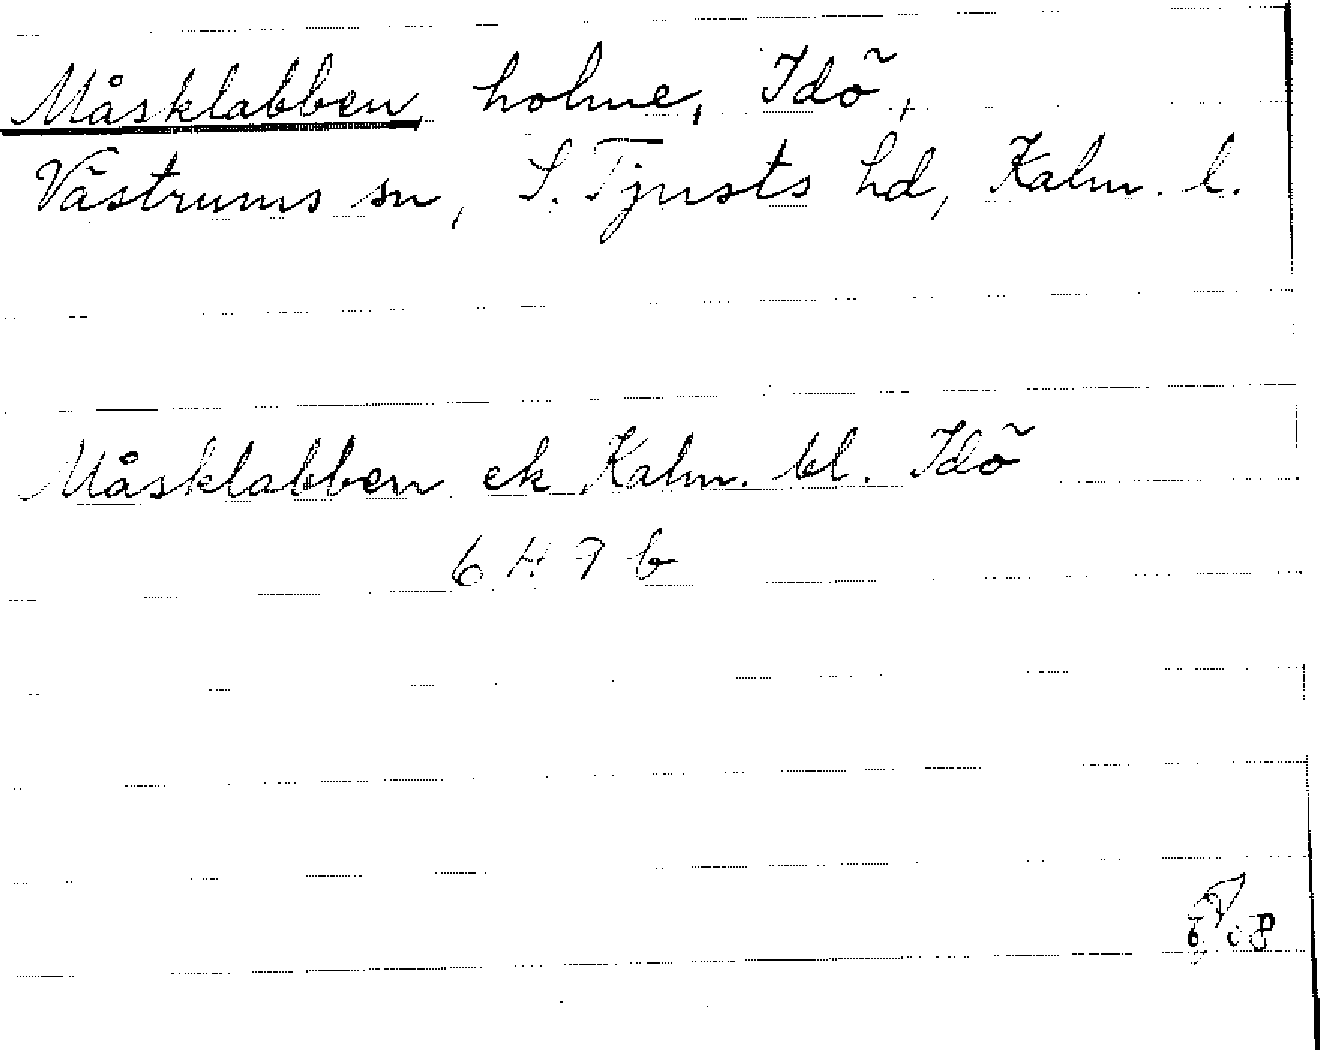 Måsklabben holme, Idö,
Västrums sn, S. Tjusts hd, Kalm. l.
Måsklabben ek Kalm. bl. Idö
6 H 7 b